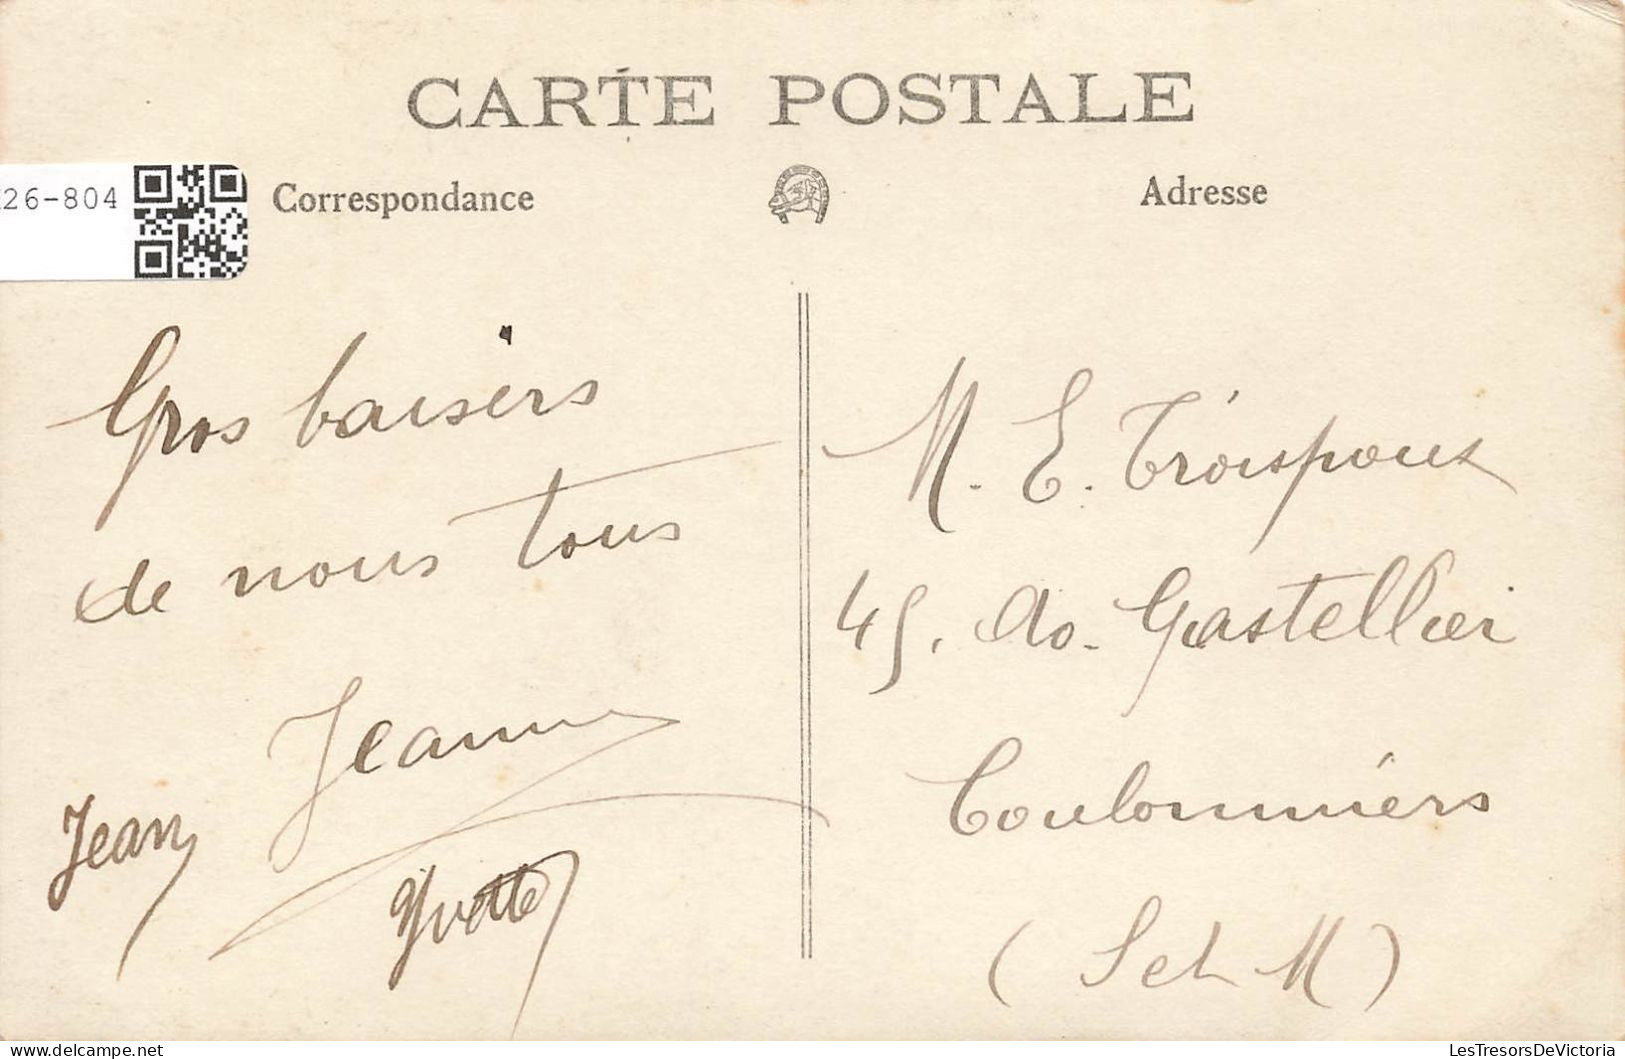 CARTE POSTALE
26-804
Correspondance
Adresse
Gros baisers
de nous tous
Jeanne
Jean
Yvette
M. E. Troispoux
45, Av. Gastellier
Coulommiers
(S et M)
LesTresorsDeVictoria